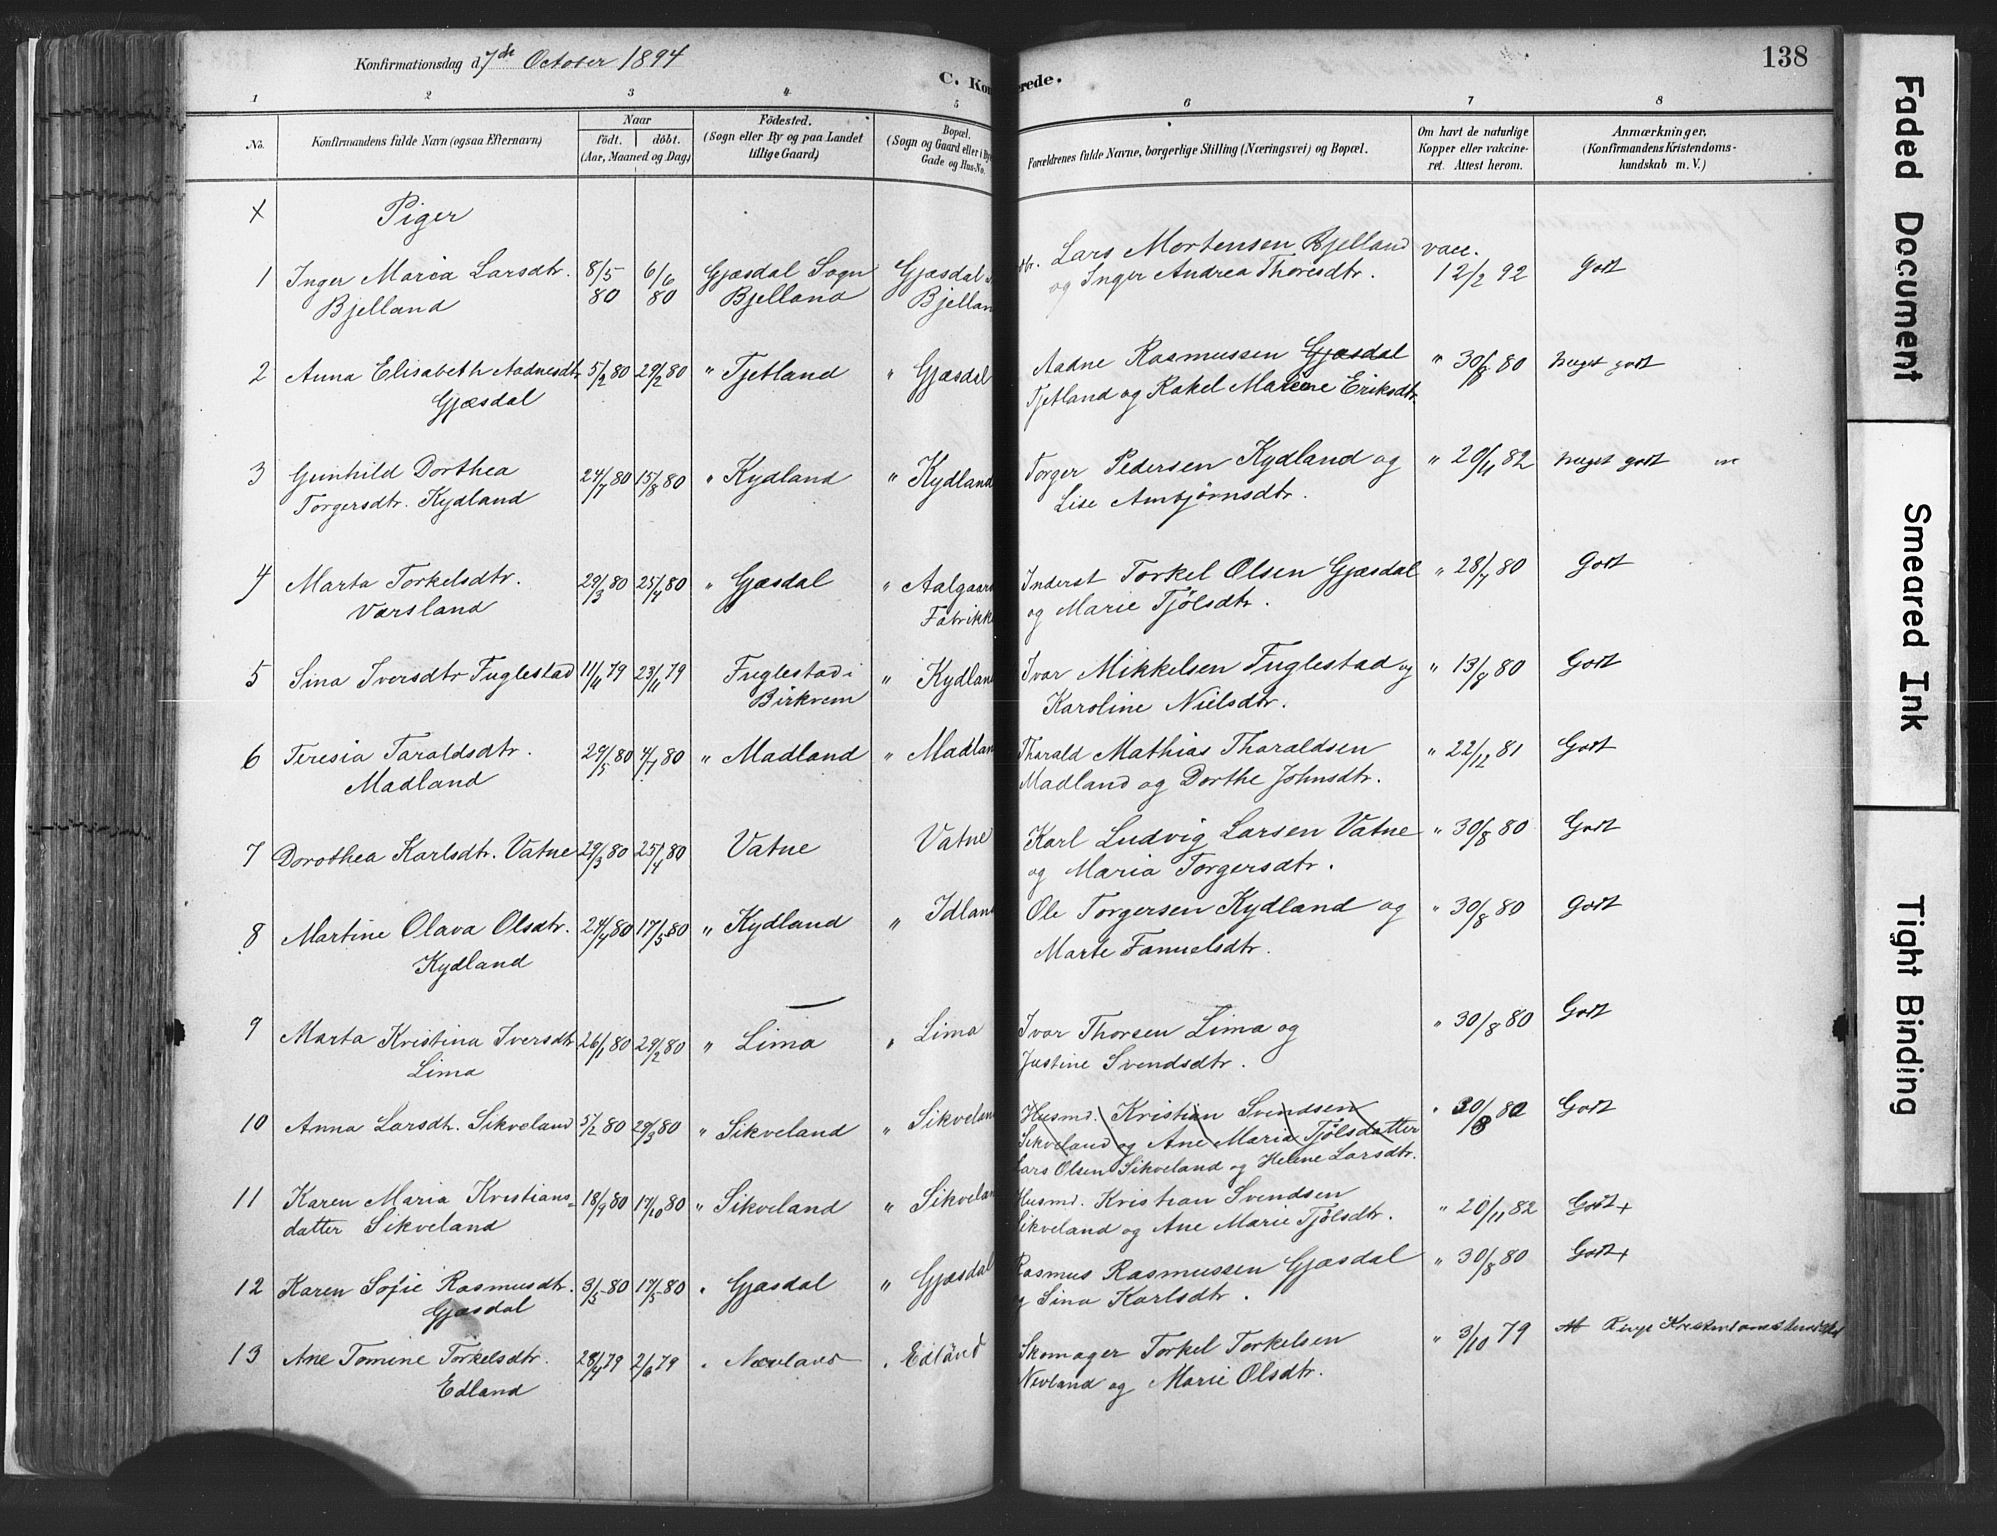 Konfirmationsdag d. 7de October 1894
138
C. Kon
erede.
1 2 3 4 5 6 7 8
No.
Konfirmandens fulde Navn (ogsaa Efternavn)
Naar
født. døbt.
(Aar, Maaned og Dag)
Fødested.
(Sogn eller By og paa Landet
tillige Gaard)
Bopæl.
(Sogn og Gaard eller i By
Gade og Hus-No.
Forældrenes fulde Navne, borgerlige Stilling (Næringsvei) og Bopæl.
Om havt de naturlige
Kopper eller vakcine-
ret. Attest herom.
Anmærkninger,
(Konfirmandens Kristendoms-
kundskab m. V.)
X Piger
1 Inger Maria Larsdtr. 8/5 6/6 Gjæsdal Sogn Gjæsdal Lars Mortensen Bjelland vacc.
Bjelland 80 80 Bjelland Bjellan og Inger Andrea Thoresdtr. 12/2 92 Godt
2 Anna Elisabeth Aadnesdtr 5/2 80 29/2 80 " Tjetland " Gjæsdal Aadne Rasmussen Gjæsdal " 30/8 80 Meget godt
Gjæsdal Tjetland og Rakel Marene Eriksdtr.
3 Gunhild Dorthea 24/7 80 15/8 80 " Kydland " Kydland Torger Pedersen Kydland og " 20/11 82 Meget godt
Torgersdtr. Kydland Lise Ambjørnsdtr.
4 Marta Torkelsdtr. 29/3 80 25/4 80 " Gjæsdal " Aalgaard Inderst Torkel Olsen Gjæsdal " 28/7 80 Godt
Varsland Fabrikke og Marie Tjølsdtr.
5 Sina Iversdtr Fuglestad 11/4 79 23/11 79 Fuglestad i " Kydlan Ivar Mikkelsen Fuglestad og " 13/8 80 Godt
Birkrem Karoline Nielsdtr.
6 Teresia Taraldsdtr. 29/5 80 4/7 80 " Madland " Madlan Tharald Mathias Tharaldsen " 22/12 81 Godt
Madland Madland og Dorthe Johnsdtr.
7 Dorothea Karlsdtr. Vatne 29/3 80 25/4 80 Vatne Vatne Karl Ludvig Larsen Vatne " 30/8 80 Godt
og Maria Torgersdtr.
8 Martine Olava Olsdtr. 24/4 80 17/5 80 " Kydland " Idlan Ole Torgersen Kydland og " 30/8 80 Godt
Kydland Marte Famuelsdtr.
9 Marta Kristina Iversdtr 26/1 80 29/2 80 " Lima " Lima Ivar Thorsen Lima og " 30/8 80 Godt
Lima Justine Svendsdtr.
10 Anna Larsdtr. Sikveland 5/2 80 29/3 80 " Sikveland " Sikvelan Husmd. Kristian Svendsen " 30/8 80 Godt
Sikveland og Ane Maria Tjølsdatter
Lars Olsen Sikveland og Helene Larsdtr.
11 Karen Maria Kristians- 18/9 80 17/10 80 " Sikveland " Sikvelan Husmd. Kristian Svendsen " 20/11 82 Godt +
datter Sikveland Sikveland og Ane Marie Tjølsdtr.
12 Karen Sofie Rasmusdtr. 3/5 80 17/5 80 " Gjæsdal " Gjæsdal Rasmus Rasmussen Gjæsdal " 30/8 80 Godt +
Gjæsdal og Sina Karlsdtr.
13 Ane Tomine Torkelsdtr. 28/4 79 2/6 79 " Nævland " Edland Skomager Torkel Torkelsen " 3/10 79
Edland Nevland og Marie Olsdtr.
Faded Document
Smeared Ink
Tight Binding